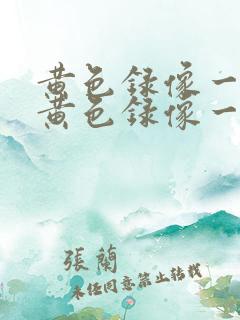 黄色録像一
黄色録像一
張蘭
未经同意禁止转载